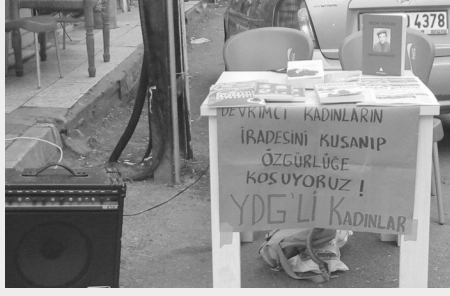 4378
DEVRİMCİ KADINLARIN
İRADESİNİ KUŞANIP
ÖZGÜRLÜĞE
KOŞUYORUZ!
YDG'Lİ KADINLAR